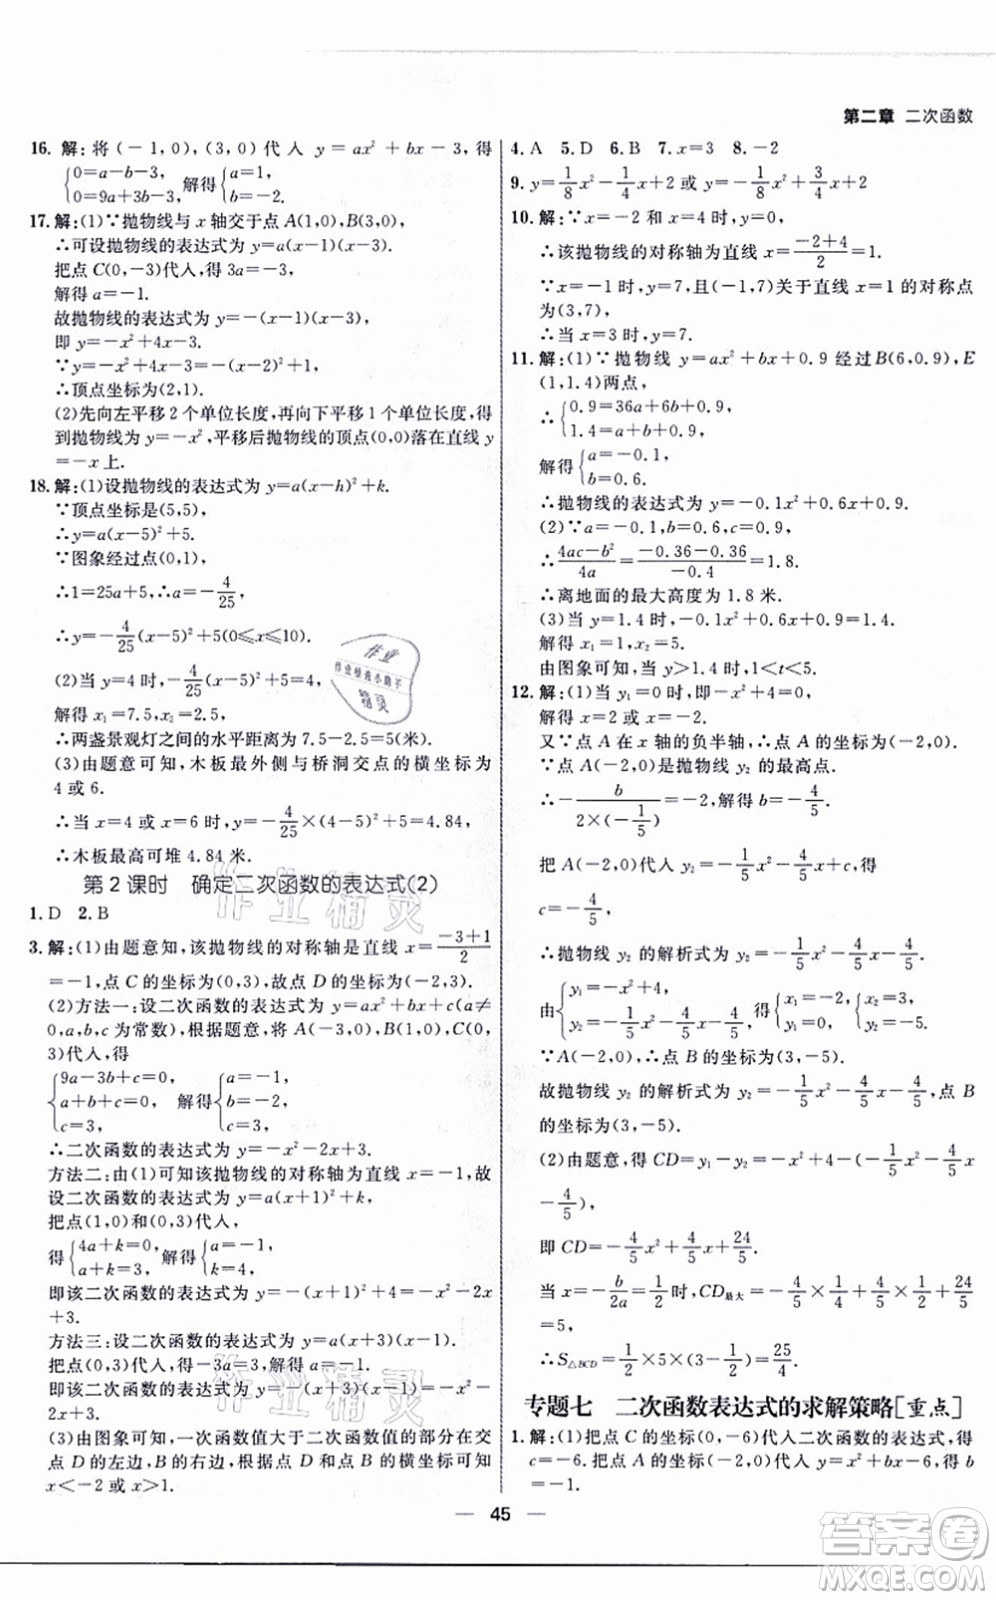 第二章 二次函数
16. 解: 将(-1,0),(3,0)代入 y=ax²+bx-3,得
{0=a-b-3, 0=9a+3b-3, 解得{a=1, b=-2.
17. 解:(1)∵抛物线与 x 轴交于点 A(1,0),B(3,0),
∴可设抛物线的表达式为 y=a(x-1)(x-3).
把点 C(0,-3)代入,得 3a=-3,
解得 a=-1.
故抛物线的表达式为 y=-(x-1)(x-3),
即 y=-x²+4x-3.
∵y=-x²+4x-3=-(x-2)²+1,
∴顶点坐标为(2,1).
(2)先向左平移 2 个单位长度,再向下平移 1 个单位长度,得
到抛物线为 y=-x²,平移后抛物线的顶点(0,0)落在直线 y
=-x 上.
18. 解:(1)设抛物线的表达式为 y=a(x-h)²+k.
∵顶点坐标是(5,5),
∴y=a(x-5)²+5.
∵图象经过点(0,1),
∴1=25a+5,∴a=-4/25,
∴y=-4/25(x-5)²+5(0≤x≤10).
(2)当 y=4 时,-4/25(x-5)²+5=4,
解得 x₁=7.5,x₂=2.5,
∴两盏景观灯之间的水平距离为 7.5-2.5=5(米).
(3)由题意可知,木板最外侧与桥洞交点的横坐标为
4 或 6.
∴当 x=4 或 x=6 时,-4/25×(4-5)²+5=4.84,
∴木板最高可堆 4.84 米.
第 2 课时 确定二次函数的表达式(2)
1. D 2. B
3. 解:(1)由题意知,该抛物线的对称轴是直线 x=(-3+1)/2
=-1,点 C 的坐标为(0,3),故点 D 的坐标为(-2,3).
(2)方法一:设二次函数的表达式为 y=ax²+bx+c(a≠
0,a,b,c 为常数),根据题意,将 A(-3,0),B(1,0),C(0,
3)代入,得
{9a-3b+c=0, a+b+c=0, c=3, 解得{a=-1, b=-2, c=3,
∴二次函数的表达式为 y=-x²-2x+3.
方法二:由(1)可知该抛物线的对称轴为直线 x=-1,故
设二次函数的表达式为 y=a(x+1)²+k,
把点(1,0)和(0,3)代入,
得{4a+k=0, a+k=3, 解得{a=-1, k=4.
即该二次函数的表达式为 y=-(x+1)²+4=-x²-2x
+3.
方法三:设二次函数的表达式为 y=a(x+3)(x-1).
把点(0,3)代入,得-3a=3,解得 a=-1.
即该二次函数的表达式为 y=-(x+3)(x-1)=-x²-2x+3.
(3)由图象可知,一次函数值大于二次函数值的部分在交
点 D 的左边,B 的右边,结合点 D 与点 B 的横坐标可知
x<-2 或 x>1.
4. A 5. D 6. B 7. x=3 8. -2
9. y=1/8x²-1/4x+2 或 y=1/8x²+3/4x+2
10. 解:∵x=-2 和 x=4 时,y=0,
∴该抛物线的对称轴为直线 x=(-2+4)/2=1.
∵x=-1 时,y=7,且(-1,7)关于直线 x=1 的对称点
为(3,7),
∴当 x=3 时,y=7.
11. 解:(1)∵抛物线 y=ax²+bx+0.9 经过 B(6,0.9),E
(1,1.4)两点,
∴{0.9=36a+6b+0.9, 1.4=a+b+0.9,
解得{a=-0.1, b=0.6.
∴抛物线的表达式为 y=-0.1x²+0.6x+0.9.
(2)∵a=-0.1,b=0.6,c=0.9,
∴(4ac-b²)/4a=(-0.36-0.36)/(-0.4)=1.8.
∴离地面的最大高度为 1.8 米.
(3)当 y=1.4 时,-0.1x²+0.6x+0.9=1.4.
解得 x₁=1,x₂=5.
由图象可知,当 y>1.4 时,1<t<5.
12. 解:(1)当 y₁=0 时,即-x²+4=0,
解得 x=±2.
又∵点 A 在 x 轴的负半轴,∴点 A 的坐标为(-2,0).
∵点 A(-2,0)是抛物线 y₂ 的最高点.
∴-b/(2×(-1/5))=-2,解得 b=-4/5.
把 A(-2,0)代入 y₂=-1/5x²-4/5x+c,得
c=-4/5,
∴抛物线 y₂ 的解析式为 y₂=-1/5x²-4/5x-4/5.
由{y₁=-x²+4, y₂=-1/5x²-4/5x-4/5, 得{x₁=-2, y₁=0, {x₂=3, y₂=-5.
∵A(-2,0),∴点 B 的坐标为(3,-5).
故抛物线 y₂ 的解析式为 y₂=-1/5x²-4/5x-4/5,点 B
的坐标为(3,-5).
(2)由题意,得 CD=y₁-y₂=-x²+4-(-1/5x²-4/5x
-4/5),
即 CD=-4/5x²+4/5x+24/5.
当 x=-b/2a=1/2时,CD最大=-4/5×1/4+4/5×1/2+24/5
=5,
∴S△BCD=1/2×5×(3-1/2)=25/4.
专题七 二次函数表达式的求解策略[重点]
1. 解:(1)把点 C 的坐标(0,-6)代入二次函数的表达式,得
c=-6.把点 A 的坐标(-2,0)代入 y=x²+bx-6,得 b
=-1.
— 45 —
作业
作业检查小助手
精灵
作业精灵
作业精灵
答案卷
MXQE.COM